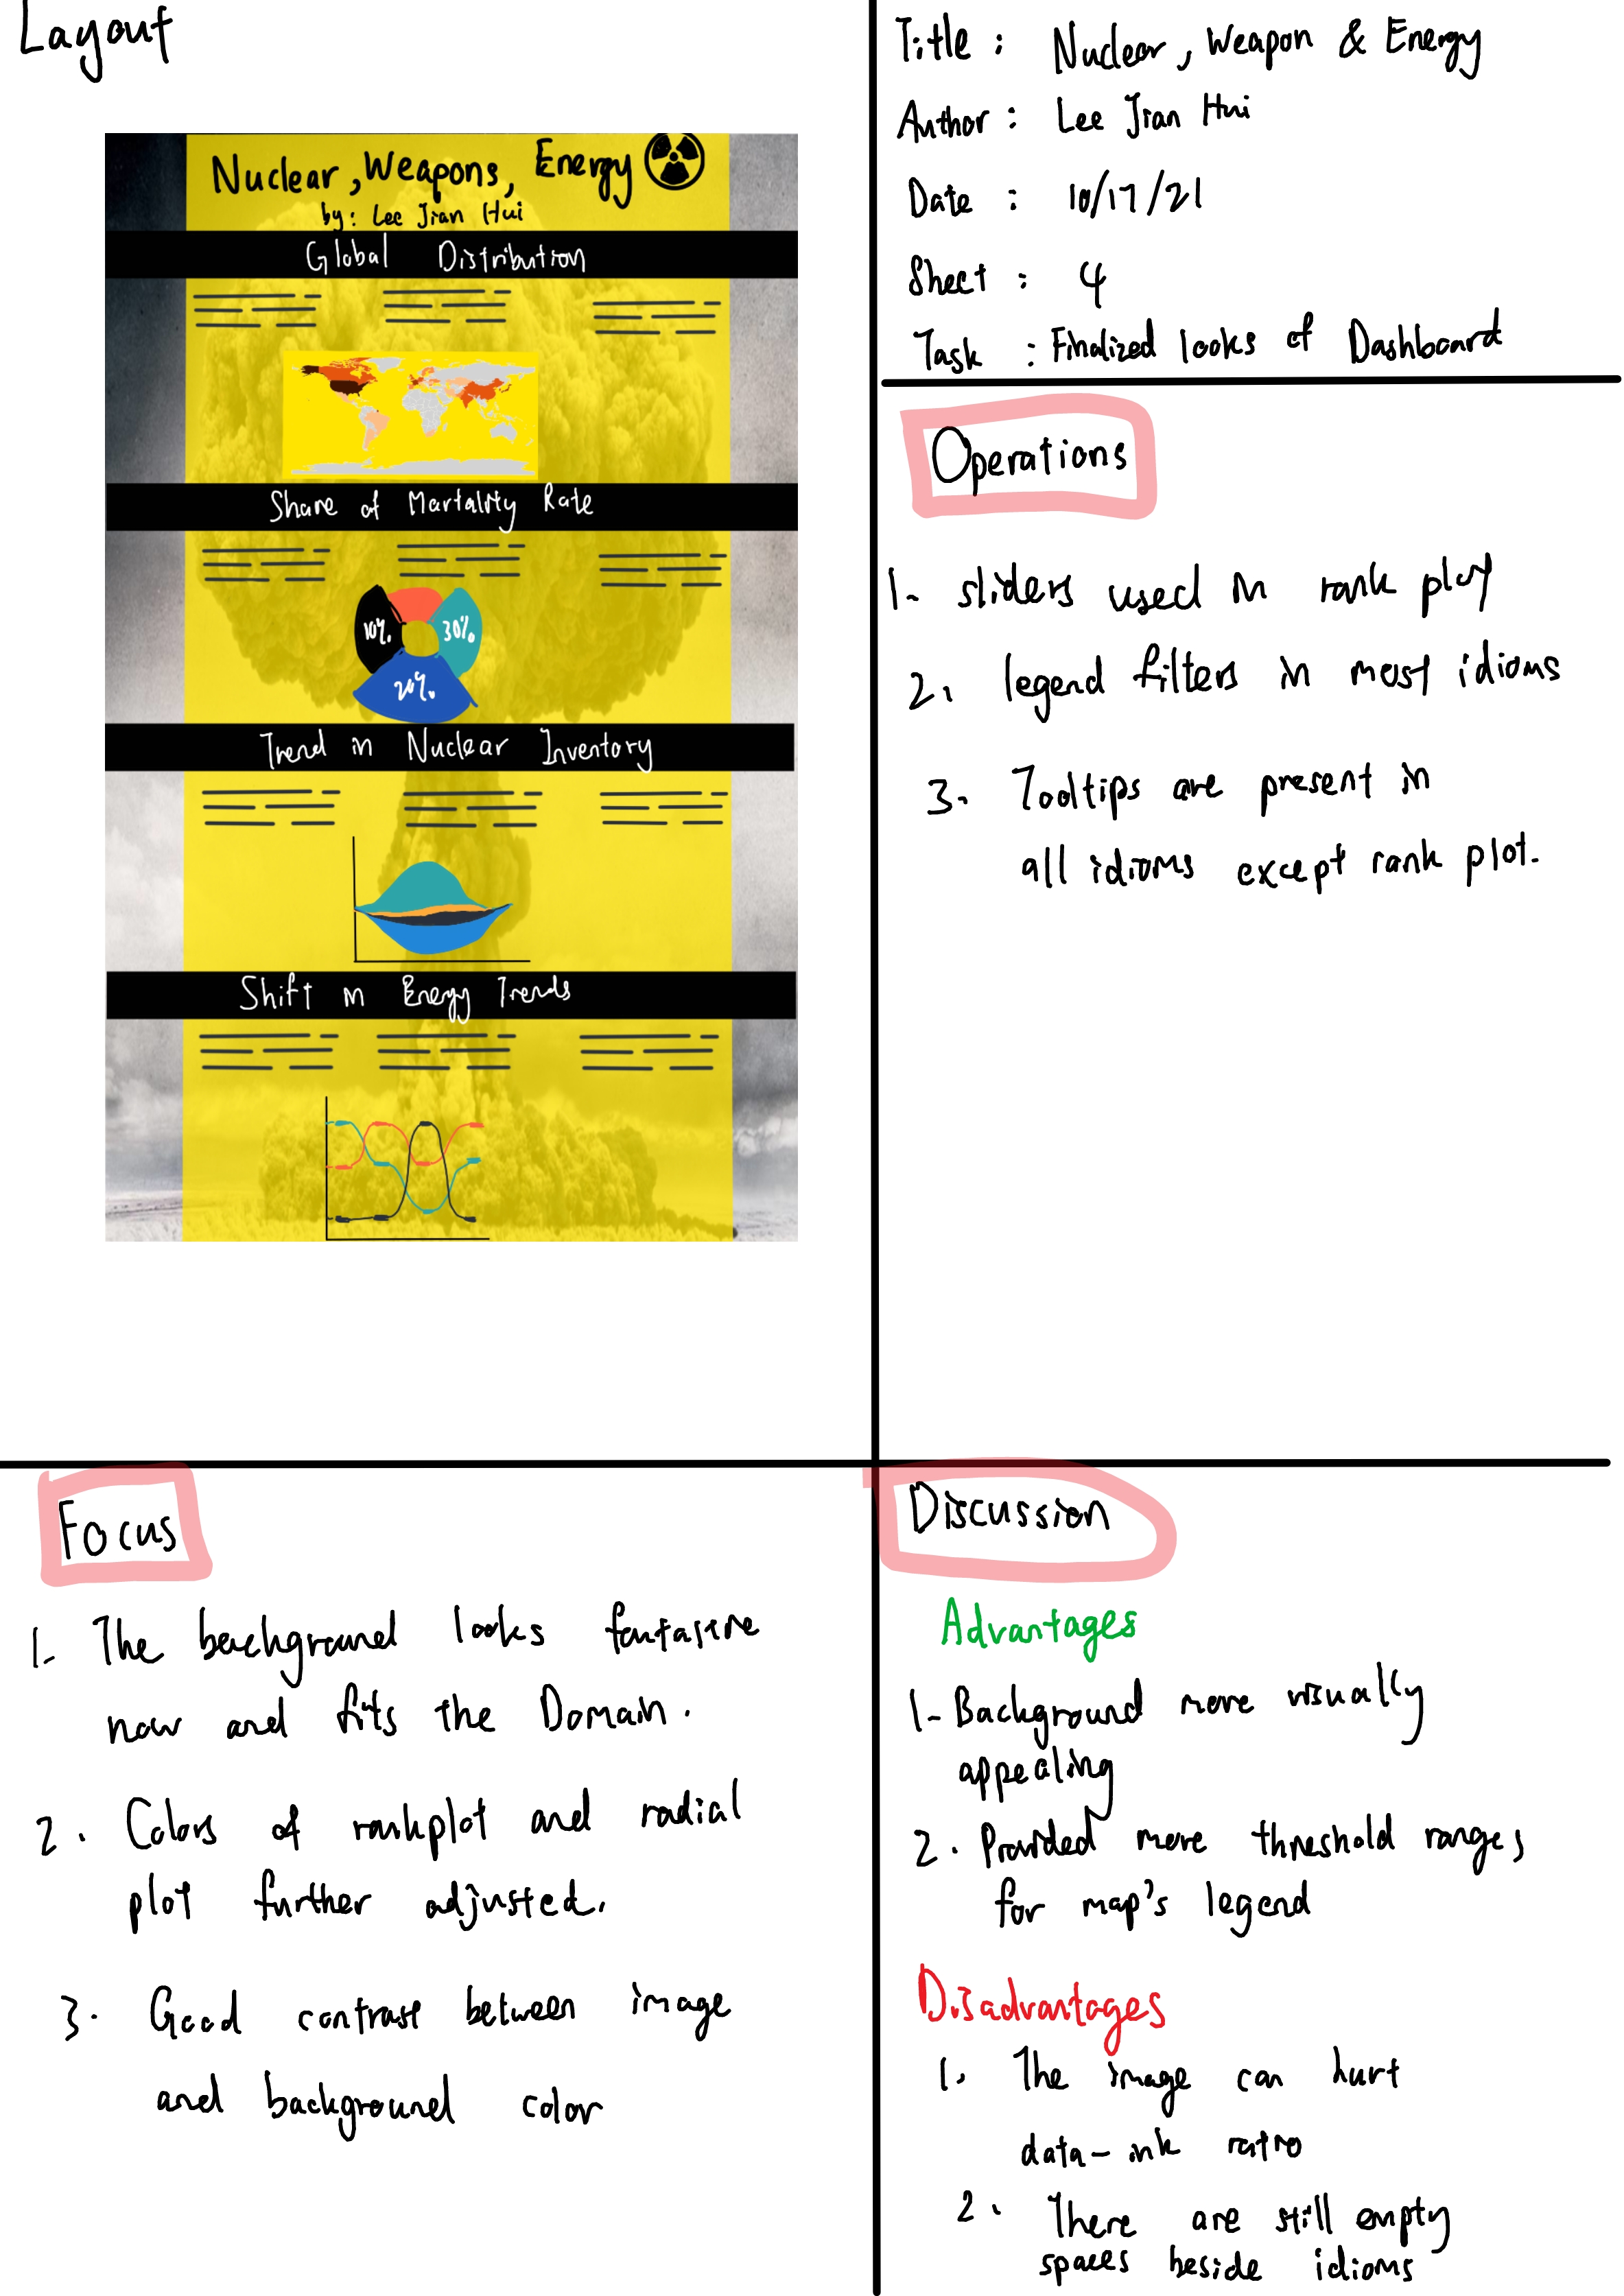 Layout
Nuclear, Weapons, Energy
by: Lee Jian Hui
Global Distribution
Share of Martality Rate
10%.
30%.
20%.
Trend in Nuclear Inventory
Shift in Energy Trends
Title : Nuclear, Weapon & Energy
Author : Lee Jian Hui
Date : 10/17/21
Sheet : 4
Task : Finalized looks of Dashboard
Operations
1- sliders used in rank plot
2. legend filters in most idioms
3. Tooltips are present in
all idioms except rank plot.
Focus
1. The background looks fantastic
now and fits the Domain.
2. Colors of rankplot and radial
plot further adjusted.
3. Good contrast between image
and background color
Discussion
Advantages
1- Background more visually
appealing
2. Provided more threshold ranges
for map's legend
Disadvantages
1. The image can hurt
data-ink ratio
2. There are still empty
spaces beside idioms